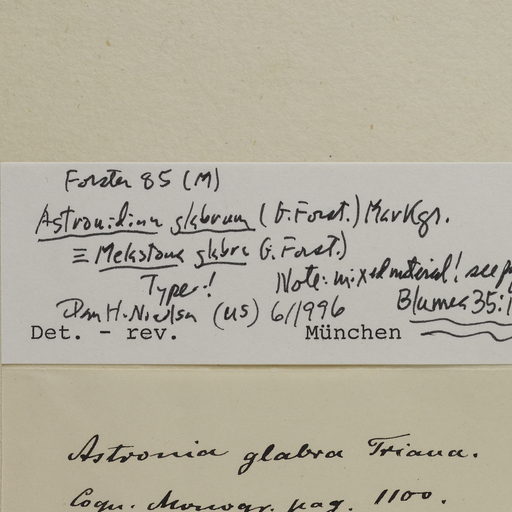 Forster 85 (M)
Astronidium glabrum (G. Forst.) Markgr.
≡ Melastoma glabra G. Forst.)
Type! Note: mixed material! see
Dan H. Nicolson (US) 6/1996 Blumea 35:1
Det. - rev. München
Astronia glabra Triana.
Cogn. Monogr. pag. 1100.